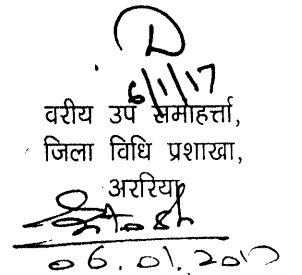 D
6/1/17
वरीय उप समाहर्त्ता,
जिला विधि प्रशाखा,
अररिया
06.01.2017